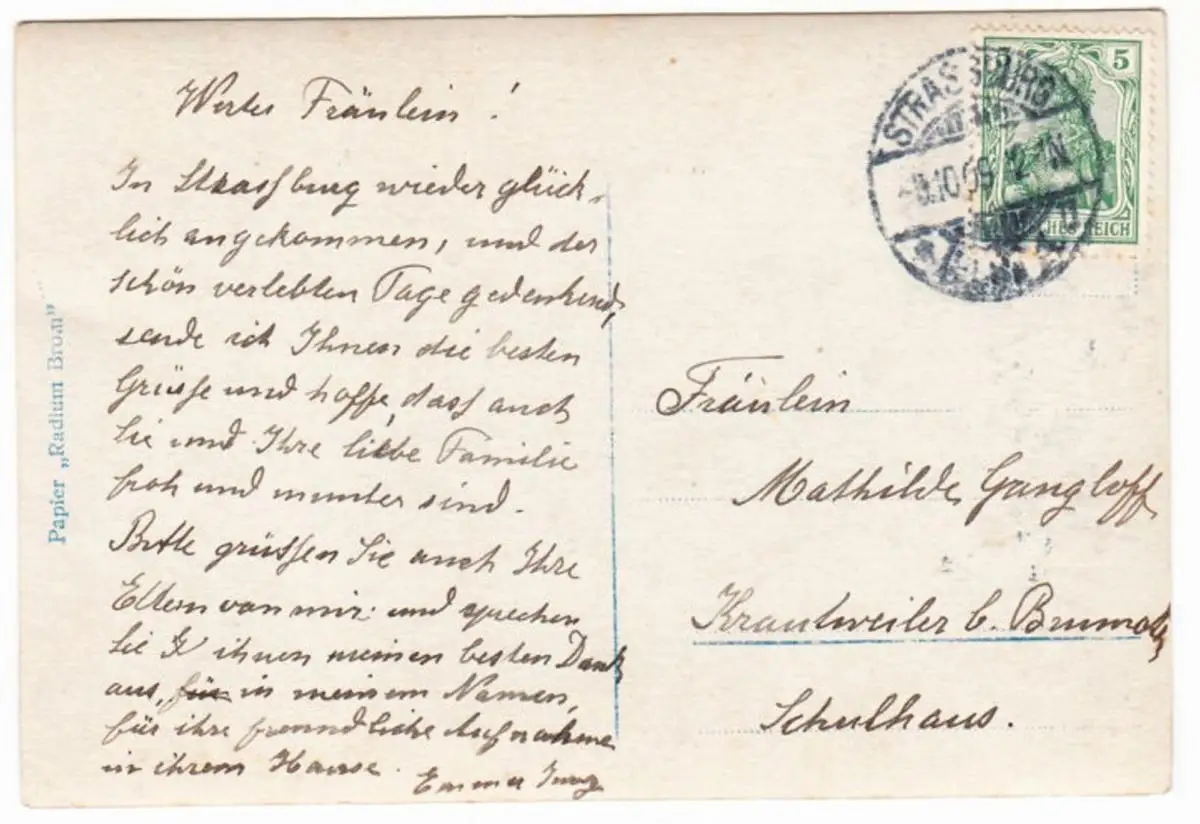 Wertes Fräulein!
In Strassburg wieder glück-
lich angekommen, und der
schön verlebten Tage gedenkend,
sende ich Ihnen die besten
Grüsse und hoffe, dass auch
Sie und Ihre liebe Familie
froh und munter sind.
Bitte grüssen Sie auch Ihre
Eltern von mir und sprechen
Sie ihnen meinen besten Dank
aus, für in meinem Namen,
für ihre freundliche Aufnahme
in ihrem Hause.
Emma
Papier „Radium Brom"
5
STRASSBURG
10.09
DEUTSCHES REICH
Fräulein
Mathilde Gangloff
Krautweiler b. Brumath
Schulhaus.